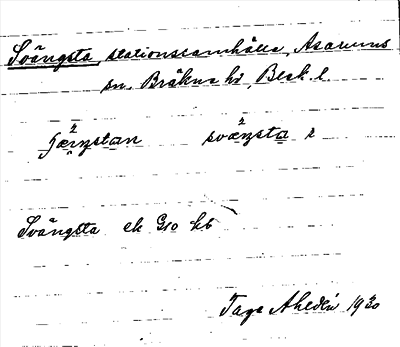 Svängsta, stationssamhälle, Asarums
sn. Bräkne hd, Blek. l.
svæŋsta
Svängsta ek G10 kb
Tage Ahldén 1930